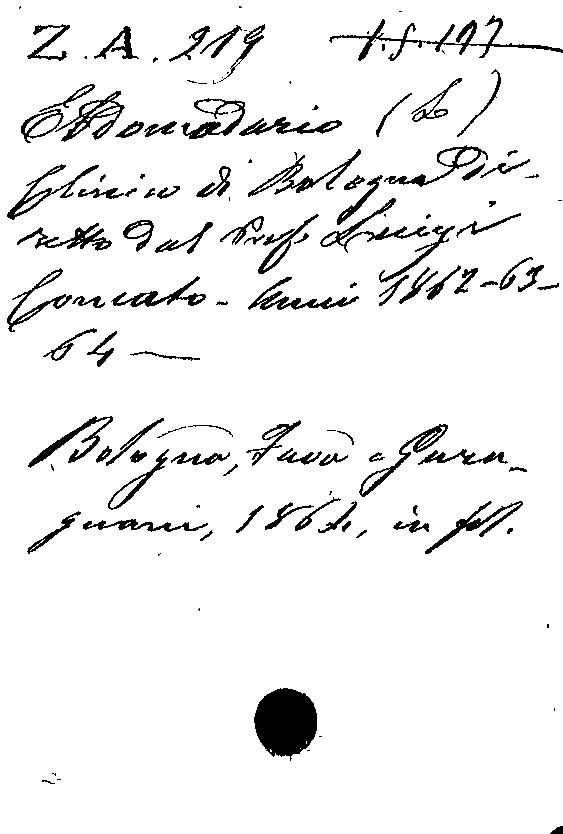 Z. A. 219 1.f.197
Ebdomadario (L')
Clinico di Bologna Di-
retto dal Prof. Luigi
Concato - Anni 1862-63-
64 —
Bologna, Fava e Gara-
gnani, 1864, in fol.